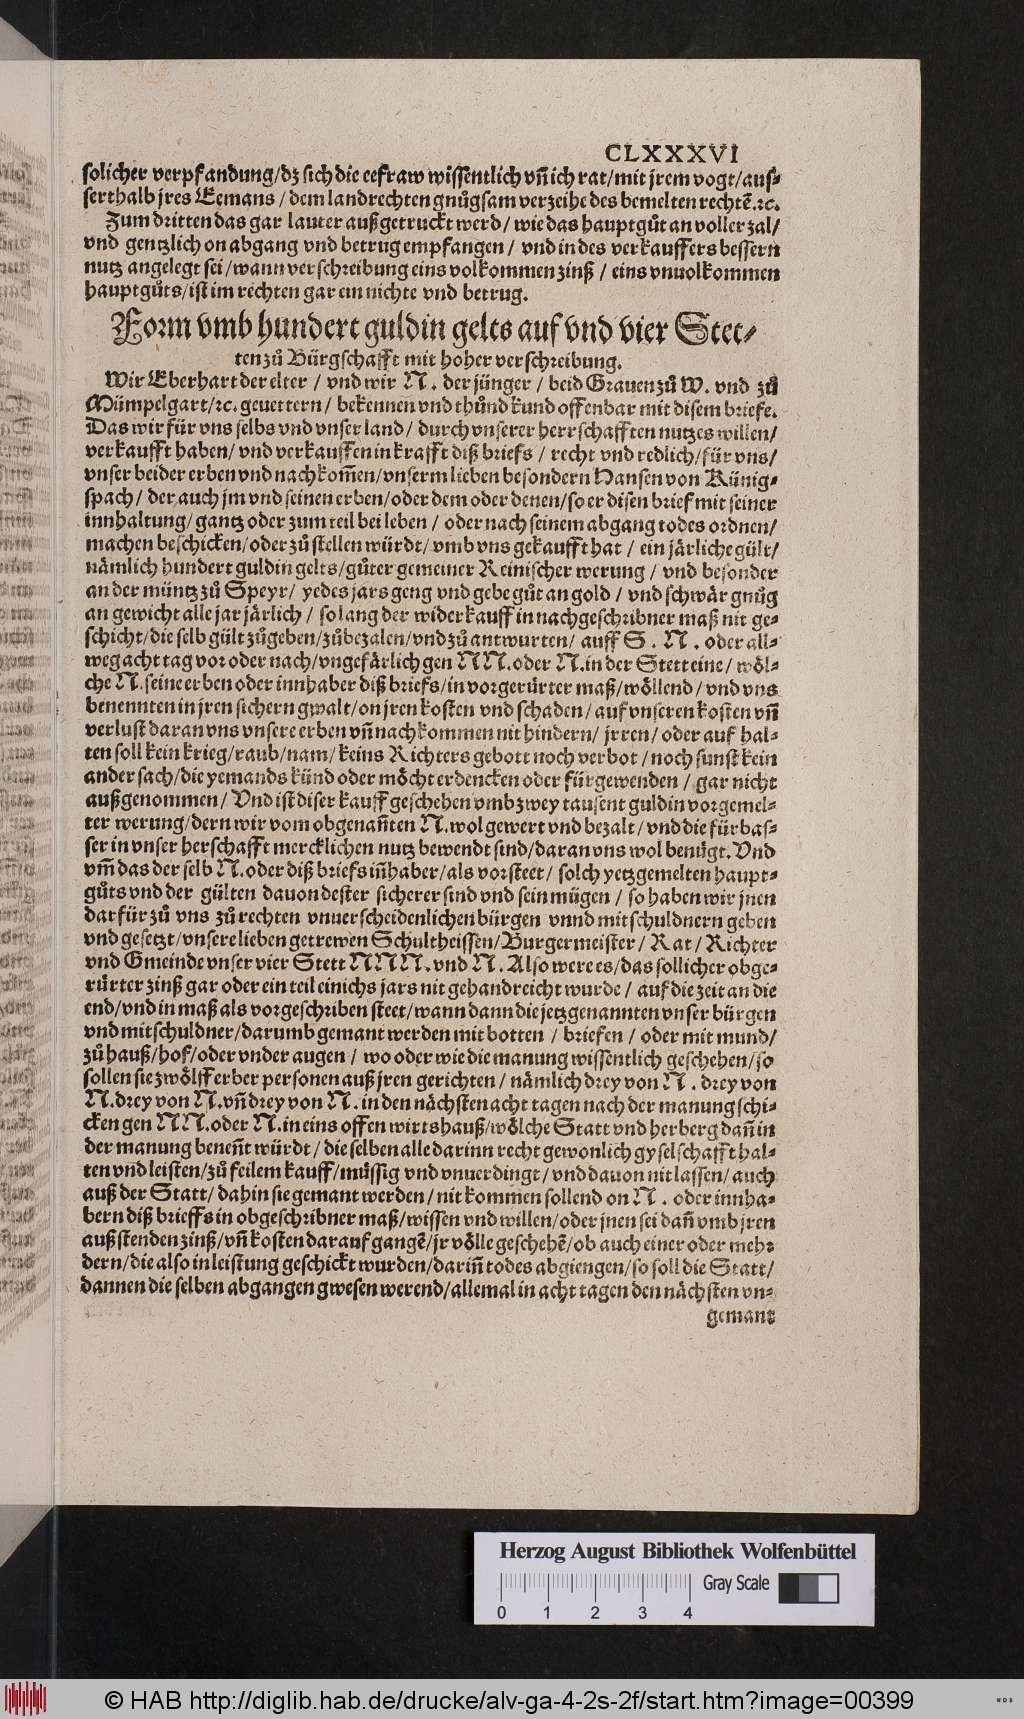 CLXXXVI
solicher verpfandung/dz sich die eefraw wissentlich vñ ich rat/mit jrem vogt/aus-
serthalb jres Eemans / dem landrechten gnůgsam verzeihe des bemelten rechtẽ.⁊c.
Zum dritten das gar lauter außgetruckt werd / wie das hauptgůt an voller zal/
vnd gentzlich on abgang vnd betrug empfangen / vnd in des verkauffers bessern
nutz angelegt sei/wann verschreibung eins volkommen zinß / eins vnuolkommen
hauptgůts/ist im rechten gar ein nichte vnd betrug.
Form vmb hundert guldin gelts auf vnd vier Stet-
ten zů Bürgschafft mit hoher verschreibung.
Wir Eberhart der elter / vnd wir N. der jünger / beid Grauen zů W. vnd zů
Mümpelgart/⁊c. geuettern / bekennen vnd thůnd kund offenbar mit disem briefe.
Das wir für vns selbs vnd vnser land / durch vnserer herrschafften nutzes willen/
verkaufft haben/ vnd verkauffen in krafft diß briefs / recht vnd redlich/für vns/
vnser beider erben vnd nachkom̃en/vnserm lieben besondern Hansen von Künig-
spach/ der auch jm vnd seinen erben/oder dem oder denen/so er disen brief mit seiner
innhaltung/gantz oder zum teil bei leben / oder nach seinem abgang todes ordnen/
machen beschicken/oder zů stellen würdt/vmb vns gekaufft hat / ein järliche gült/
nämlich hundert guldin gelts/gůter gemeiner Reinischer werung / vnd besonder
an der müntz zů Speyr/ yedes jars geng vnd gebe gůt an gold / vnd schwär gnůg
an gewicht alle jar järlich / so lang der widerkauff in nachgeschribner maß nit ge-
schicht/die selb gült zůgeben/zůbezalen/vnd zů antwurten/ auff S. N. oder all-
weg acht tag vor oder nach/vngefärlich gen NN. oder N. in der Stett eine/ wöl-
che N. seine erben oder innhaber diß briefs/in vorgerürter maß/wöllend/vnd vns
benennten in jren sichern gwalt/on jren kosten vnd schaden/auf vnseren kosten vñ
verlust daran vns vnsere erben vñ nachkommen nit hindern/ jrren/ oder auf hal-
ten soll kein krieg/raub/nam/keins Richters gebott noch verbot/noch sunst kein
ander sach/die yemands künd oder möcht erdencken oder fürgewenden / gar nicht
außgenommen/ Vnd ist diser kauff geschehen vmb zwey tausent guldin vorgemel-
ter werung/dern wir vom obgenañten N. wol gewert vnd bezalt/vnd die fürbas-
ser in vnser herschafft mercklichen nutz bewendt sind/daran vns wol benügt. Vnd
vm̃ das der selb N. oder diß briefs iñhaber/als vorsteet/ solch yetzgemelten haupt-
gůts vnd der gülten dauon dester sicherer sind vnd sein mügen / so haben wir jnen
darfür zů vns zů rechten vnuerscheidenlichen bürgen vnnd mitschuldnern geben
vnd gesetzt/vnsere lieben getrewen Schultheissen/Burgermeister/ Rat/ Richter
vnd Gmeinde vnser vier Stett NNN. vnd N. Also were es/das sollicher obge-
rürter zinß gar oder ein teil einichs jars nit gehandreicht wurde / auf die zeit an die
end/vnd in maß als vorgeschriben steet/wann dann die jetzgenannten vnser bürgen
vnd mitschuldner/darumb gemant werden mit botten / briefen / oder mit mund/
zů hauß/hof/oder vnder augen / wo oder wie die manung wissentlich geschehen/so
sollen sie zwölff erber personen auß jren gerichten / nämlich drey von N. drey von
N. drey von N. vñ drey von N. in den nächsten acht tagen nach der manung schi-
cken gen NN. oder N. in eins offen wirtshauß/wölche Statt vnd herberg dañ in
der manung beneñt würdt / die selben alle darinn recht gewonlich gyselschafft hal-
ten vnd leisten/zů feilem kauff/müssig vnd vnuerdingt/vnd dauon nit lassen/auch
auß der Statt/ dahin sie gemant werden/nit kommen sollend on N. oder innha-
bern diß brieffs in obgeschribner maß/wissen vnd willen/oder jnen sei dañ vmb jren
außstenden zinß/vñ kosten darauf gangẽ/jr völle geschehẽ/ob auch einer oder meh-
dern/die also in leistung geschickt wurden/dariñ todes abgiengen/so soll die Statt/
dannen die selben abgangen gwesen werend/allemal in acht tagen den nächsten vn-
gemant
Herzog August Bibliothek Wolfenbüttel
Gray Scale
0 1 2 3 4
© HAB http://diglib.hab.de/drucke/alv-ga-4-2s-2f/start.htm?image=00399